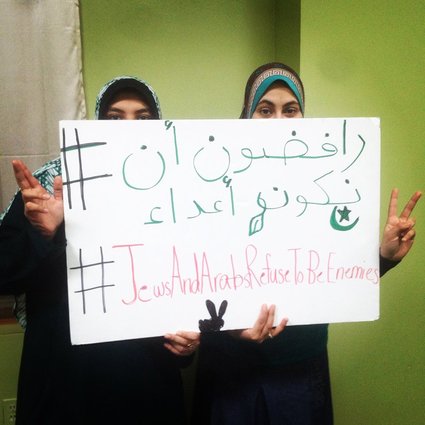 # رافضون أن
نكونو أعداء
#JewsAndArabsRefuseToBeEnemies